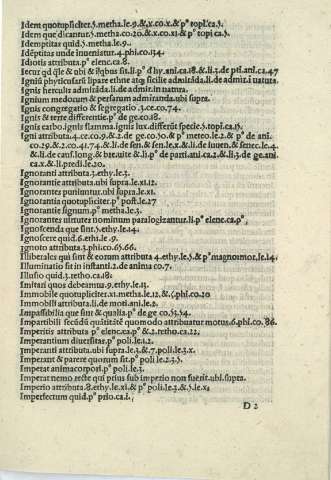 Idem quotupliciter.5.metha.le.9.&.x.co.x.&.pº topi.ca.5.
Idem que dicantur.5.metha.co.20.&.x.co.xi.&.pº topi ca.5.
Idemptitas quid.5.metha.le.9.
Idéptitas unde inueniatur.4.phi.co.134.
Idiotis attributa.pº elenc.ca.8.
Iecur qd
Igniū physicusari lipare ethne atq; sicilie admirāda.li.de admir.ī natura.
Ignis herculis admirāda.li.de admir.in natura.
Ignium medorum & persarum admiranda.ubi supra.
Ignis congregatio & segregatio.3.ce.co.74.
Ignis & terre differentie.pº de ge.co.18.
Ignis carbo ignis flamma.ignis lux differūt specie.5.topi.ca.15.
Igni attributa.4.ce.co.9.&.2.de ge.co.30.& pº meteo.le.2.& pº de ani.
co.29.&.2.co.41.74.&.li.de sen.& sen.le.x.&.li.de iuuen.& senec.le.4.
&.li.de cauf.long.& breuite &.li.pº de parti ani.ca.2.&.li.3.de ge.ani.
ca.x.&.li.predi.le.20.
Ignoranti attributa.3.ethy.le.3.
Ignorantie attributa.ubi supra.le.xi.12.
Ignorantes puniuntur.ubi supra.le.xi.
Ignorantie quotupliciter.pº post.le.27
Ignorantie signum.pº metha.le.3.
Ignorantes uirtute nominum paralogizantur.li.pº elenc.ca.pº.
Ignotcenda que sunt.5.ethy.le.14.
Ignoscere quid.6.ethi.le.9.
Ignoto attributa.3.phi.co.65.66.
Illiberales qui sint & eorum attributa 4.ethy.le.5.& pº magnomor.le.14.
Illuminatio fit in instanti.2.de anima co.7.
Illusio quid.3.retho.ca.18.
Imitari quos debeamus.9.ethy.le.13.
Immobile quotupliciter.xi.metha.le.12.&.6.phi.co.20
Immobili attributa.li.de moti.ani.le.2.
Impassibilia que sint & qualia.pº de ge co.53.54.
Impartibili secūdū quātitatē quomodo attribuatur motus.6.phi.co.86.
Imperitis attributa pº elenc.ea.pº &.2.retho.ca.22.
Imperantium diuersitas.pº poli.le.2.
Imperanti attributa.ubi supra.le.3.&.7.poli.le.x.
Imperant & parent quorum sit.pº poli le.2.3.5.
Imperat animacorpori.pº poli.le.3.
Imperat nemo recte qui prius sub imperio non fuerit.ubi.supra.
Imperio attributa.8.ethy.le.xi.&.pº poli.le.3.&.5.le.x.
Imperfectum quid.pº prio.ca.i.
D 2